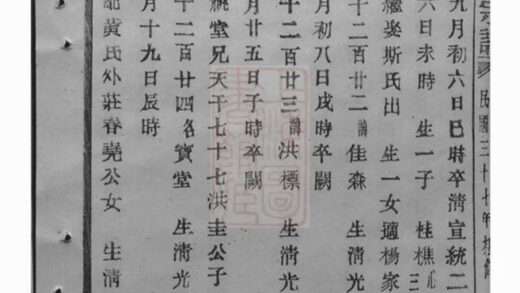 民國三十七年
九月初六日巳時卒清宣統二
六日未時 生一子 桂樵
繼娶斯氏出 生一女適楊家
十二百廿二諱佳森 生清光
月初八日戌時卒闕
十二百廿三諱洪標 生清光
月廿五日子時卒闕
統堂兄天干七十七洪圭公子
十二百廿四名寶堂 生清光
月十九日辰時
配黃氏外莊春堯公女 生清